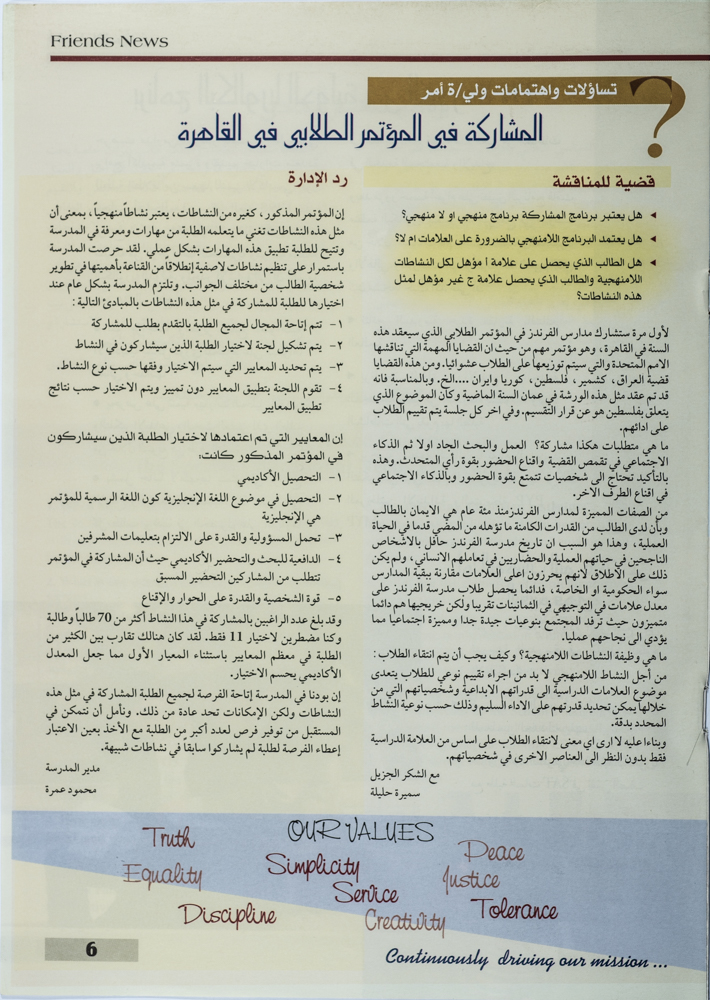 Friends News
تساؤلات واهتمامات ولي/ة أمر
؟
المشاركة في المؤتمر الطلابي في القاهرة
قضية للمناقشة
هل يعتبر برنامج المشاركة برنامج منهجي او لا منهجي؟
هل يعتمد البرنامج اللامنهجي بالضرورة على العلامات ام لا؟
هل الطالب الذي يحصل على علامة أ مؤهل لكل النشاطات
اللامنهجية والطالب الذي يحصل علامة ج غير مؤهل لمثل
هذه النشاطات؟
لأول مرة ستشارك مدارس الفرندز في المؤتمر الطلابي الذي سيعقد هذه
السنة في القاهرة، وهو مؤتمر مهم من حيث ان القضايا المهمة التي تناقشها
الامم المتحدة والتي سيتم توزيعها على الطلاب عشوائيا. ومن هذه القضايا
قضية العراق، كشمير، فلسطين، كوريا وايران ....الخ. وبالمناسبة فانه
قد تم عقد مثل هذه الورشة في عمان السنة الماضية وكان الموضوع الذي
يتعلق بفلسطين هو عن قرار التقسيم. وفي اخر كل جلسة يتم تقييم الطلاب
على ادائهم.
ما هي متطلبات هكذا مشاركة؟ العمل والبحث الجاد اولا ثم الذكاء
الاجتماعي في تقمص القضية واقناع الحضور بقوة رأي المتحدث. وهذه
بالتأكيد تحتاج الى شخصيات تتمتع بقوة الحضور وبالذكاء الاجتماعي
في اقناع الطرف الاخر.
من الصفات المميزة لمدارس الفرندزمنذ مئة عام هي الايمان بالطالب
وبأن لدى الطالب من القدرات الكامنة ما تؤهله من المضي قدما في الحياة
العملية، وهذا هو السبب ان تاريخ مدرسة الفرندز حافل بالاشخاص
الناجحين في حياتهم العملية والحضاريين في تعاملهم الانساني، ولم يكن
ذلك على الاطلاق لأنهم يحرزون اعلى العلامات مقارنة ببقية المدارس
سواء الحكومية او الخاصة، فدائما يحصل طلاب مدرسة الفرندز على
معدل علامات في التوجيهي في الثمانينات تقريبا ولكن خريجيها هم دائما
متميزون حيث ترفد المجتمع بنوعيات جيدة جدا ومميزة اجتماعيا مما
يؤدي الى نجاحهم عمليا.
ما هي وظيفة النشاطات اللامنهجية؟ وكيف يجب أن يتم انتقاء الطلاب :
من أجل النشاط اللامنهجي لا بد من اجراء تقييم نوعي للطلاب يتعدى
موضوع العلامات الدراسية الى قدراتهم الابداعية وشخصياتهم التي من
خلالها يمكن تحديد قدرتهم على الاداء السليم وذلك حسب نوعية النشاط
المحدد بدقة.
وبناءا عليه لا ارى اي معنى لانتقاء الطلاب على اساس من العلامة الدراسية
فقط بدون النظر الى العناصر الاخرى في شخصياتهم.
مع الشكر الجزيل
سميرة حليلة
رد الإدارة
إن المؤتمر المذكور، كغيره من النشاطات، يعتبر نشاطاً منهجياً، بمعنى أن
مثل هذه النشاطات تغني ما يتعلمه الطلبة من مهارات ومعرفة في المدرسة
وتتيح للطلبة تطبيق هذه المهارات بشكل عملي. لقد حرصت المدرسة
باستمرار على تنظيم نشاطات لاصفية إنطلاقاً من القناعة بأهميتها في تطوير
شخصية الطالب من مختلف الجوانب. وتلتزم المدرسة بشكل عام عند
اختيارها للطلبة للمشاركة في مثل هذه النشاطات بالمبادئ التالية :
١- تتم إتاحة المجال لجميع الطلبة بالتقدم بطلب للمشاركة
٢- يتم تشكيل لجنة لاختيار الطلبة الذين سيشاركون في النشاط
٣- يتم تحديد المعايير التي سيتم الاختيار وفقها حسب نوع النشاط.
٤- تقوم اللجنة بتطبيق المعايير دون تمييز ويتم الاختيار حسب نتائج
تطبيق المعايير
إن المعايير التي تم اعتمادها لاختيار الطلبة الذين سيشاركون
في المؤتمر المذكور كانت:
١- التحصيل الأكاديمي
٢- التحصيل في موضوع اللغة الإنجليزية كون اللغة الرسمية للمؤتمر
هي الإنجليزية
٣- تحمل المسؤولية والقدرة على الالتزام بتعليمات المشرفين
٤- الدافعية للبحث والتحضير الأكاديمي حيث أن المشاركة في المؤتمر
تتطلب من المشاركين التحضير المسبق
٥- قوة الشخصية والقدرة على الحوار والإقناع
وقد بلغ عدد الراغبين بالمشاركة في هذا النشاط أكثر من 70 طالباً وطالبة
وكنا مضطرين لاختيار 11 فقط. لقد كان هنالك تقارب بين الكثير من
الطلبة في معظم المعايير باستثناء المعيار الأول مما جعل المعدل
الأكاديمي يحسم الاختيار.
إن بودنا في المدرسة إتاحة الفرصة لجميع الطلبة المشاركة في مثل هذه
النشاطات ولكن الإمكانات تحد عادة من ذلك. ونأمل أن نتمكن في
المستقبل من توفير فرص لعدد أكبر من الطلبة مع الأخذ بعين الاعتبار
إعطاء الفرصة لطلبة لم يشاركوا سابقاً في نشاطات شبيهة.
مدير المدرسة
محمود عمرة
OUR VALUES
Truth
Peace
Simplicity
Equality
Justice
Service
Discipline
Creativity
Tolerance
Continuously driving our mission ...
6